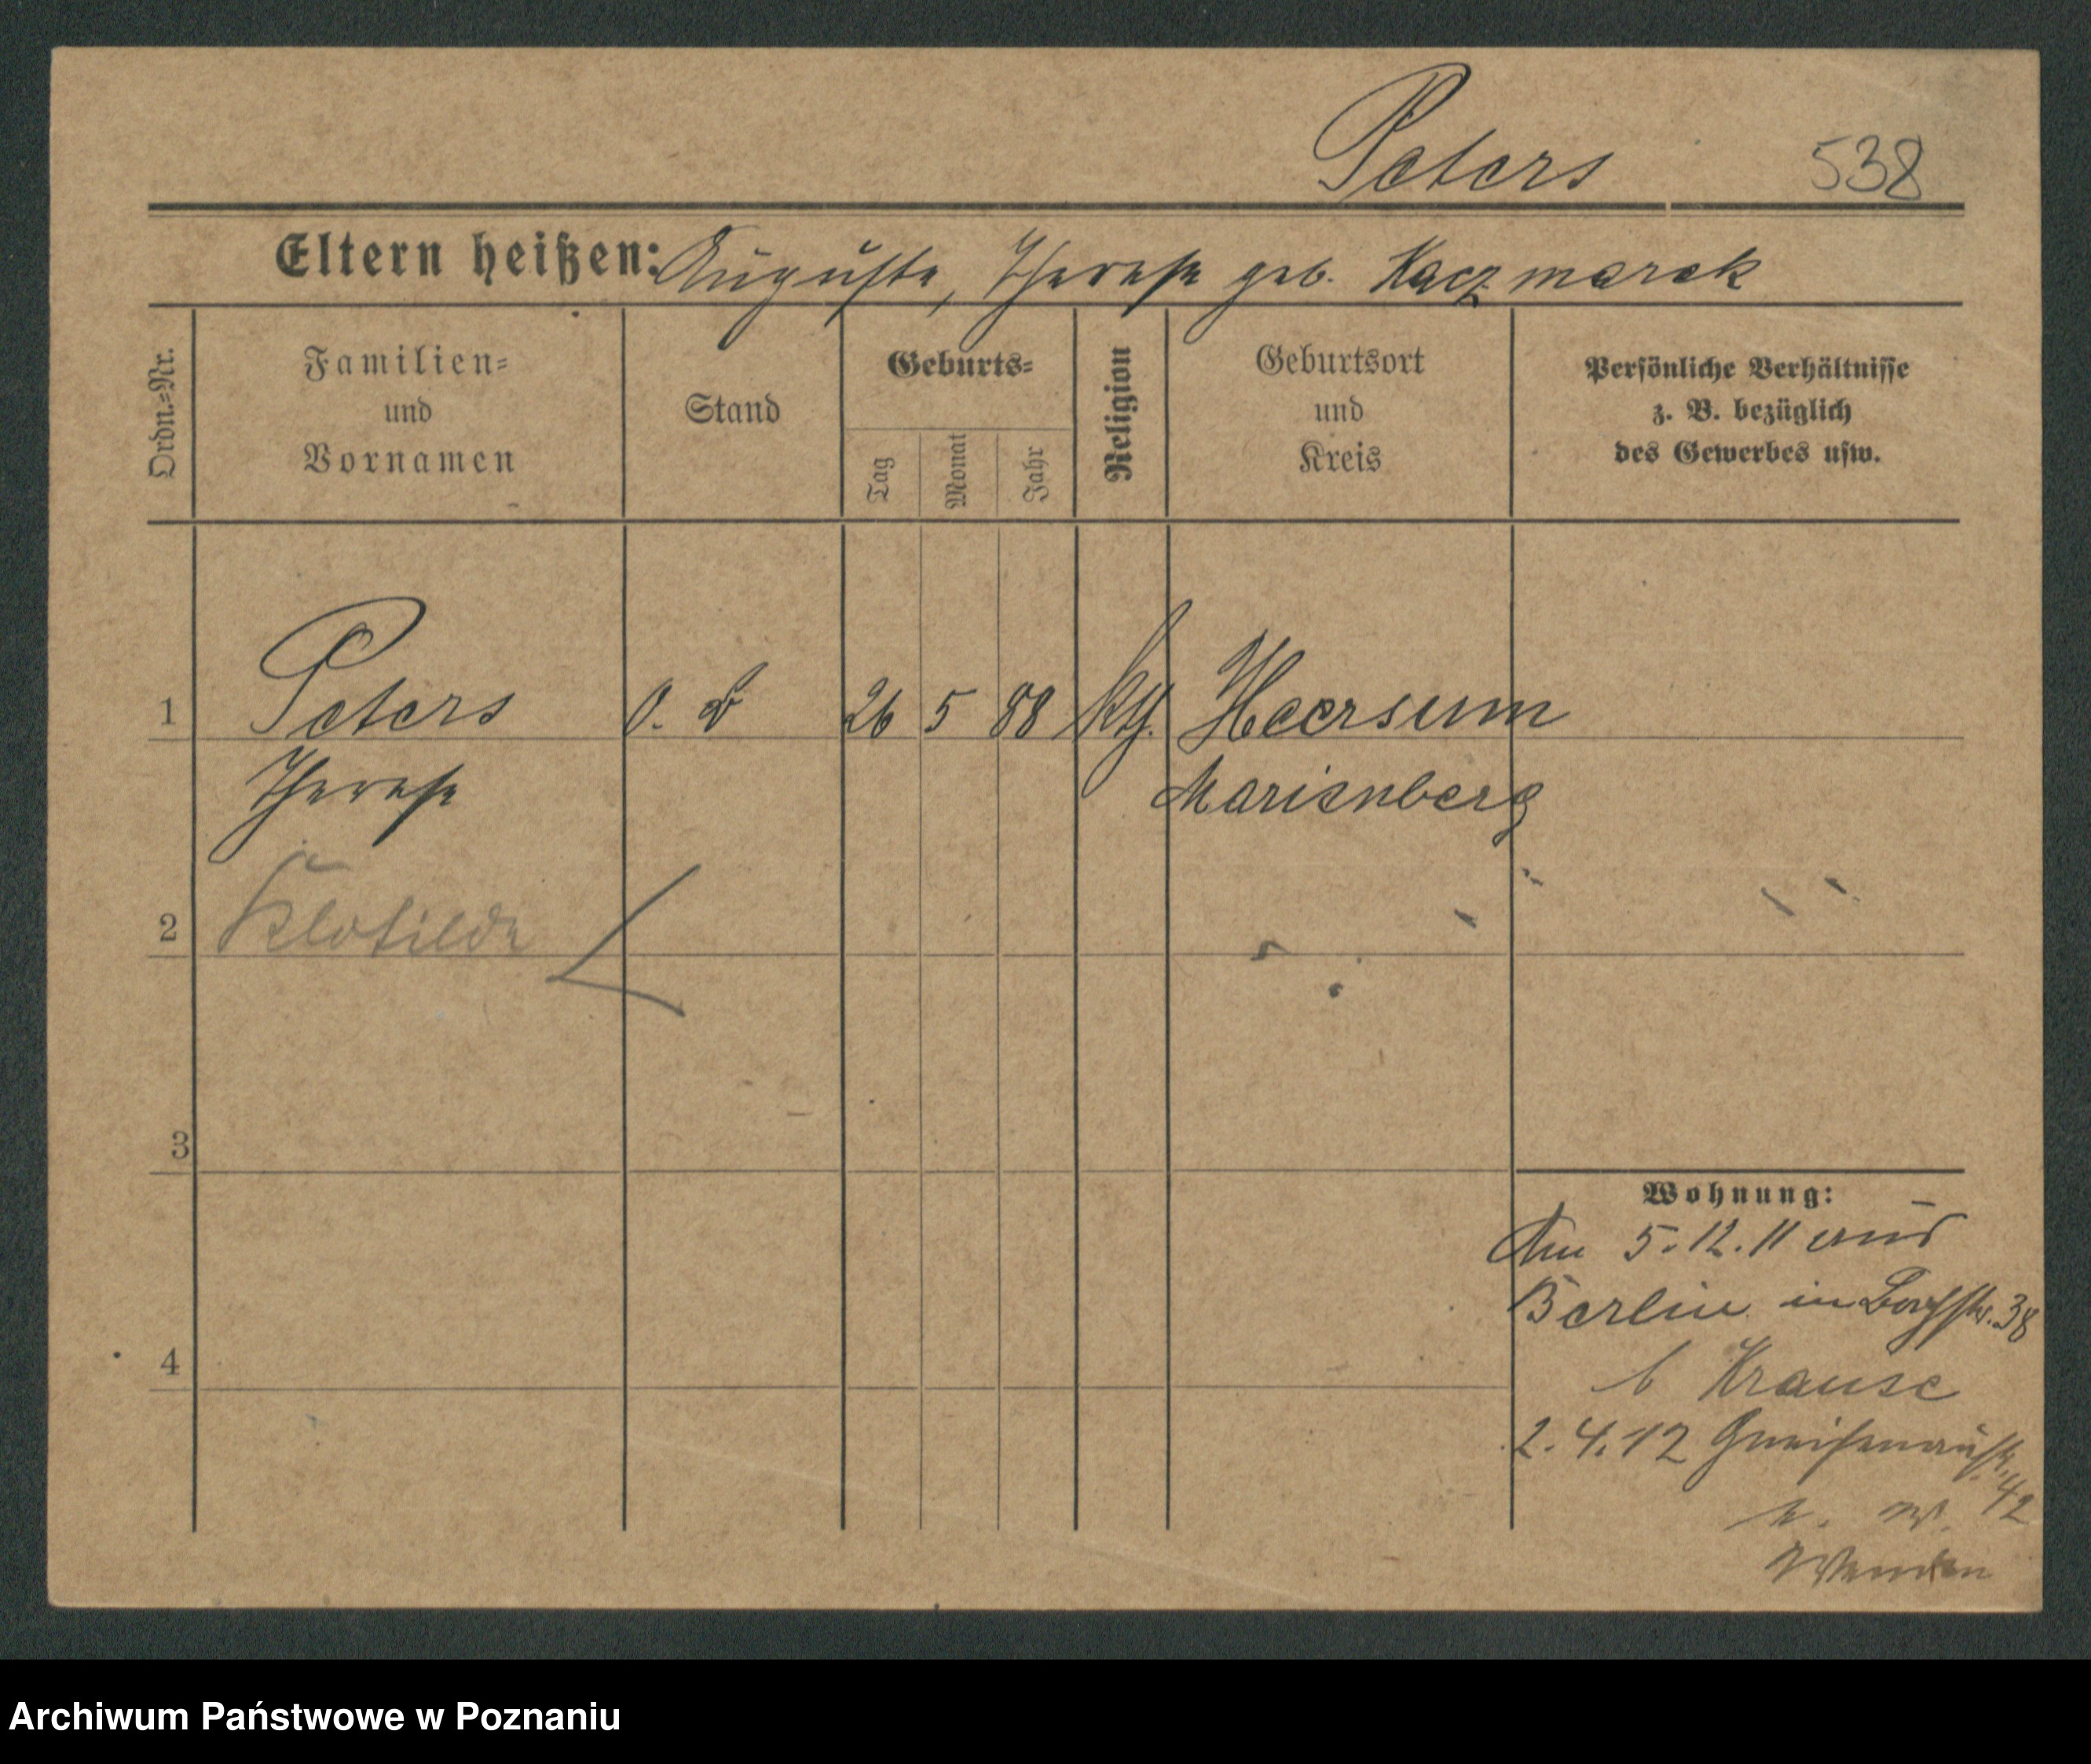 Peters 538
Eltern heißen: Auguste, Therese geb. Kaczmarek
Ordn.-Nr.
Familien-
und
Vornamen
Stand
Geburts-
Tag
Monat
Jahr
Religion
Geburtsort
und
Kreis
Persönliche Verhältnisse
z. B. bezüglich
des Gewerbes usw.
1 Peters 26 5 88 Heersum
Therese Marienberg
2 Klotilde
3
4
Wohnung:
Am 5.12.11 aus
Berlin in 38
b Krause
2.4.12 Gneisenaustr. 42
Wenden
Archiwum Państwowe w Poznaniu